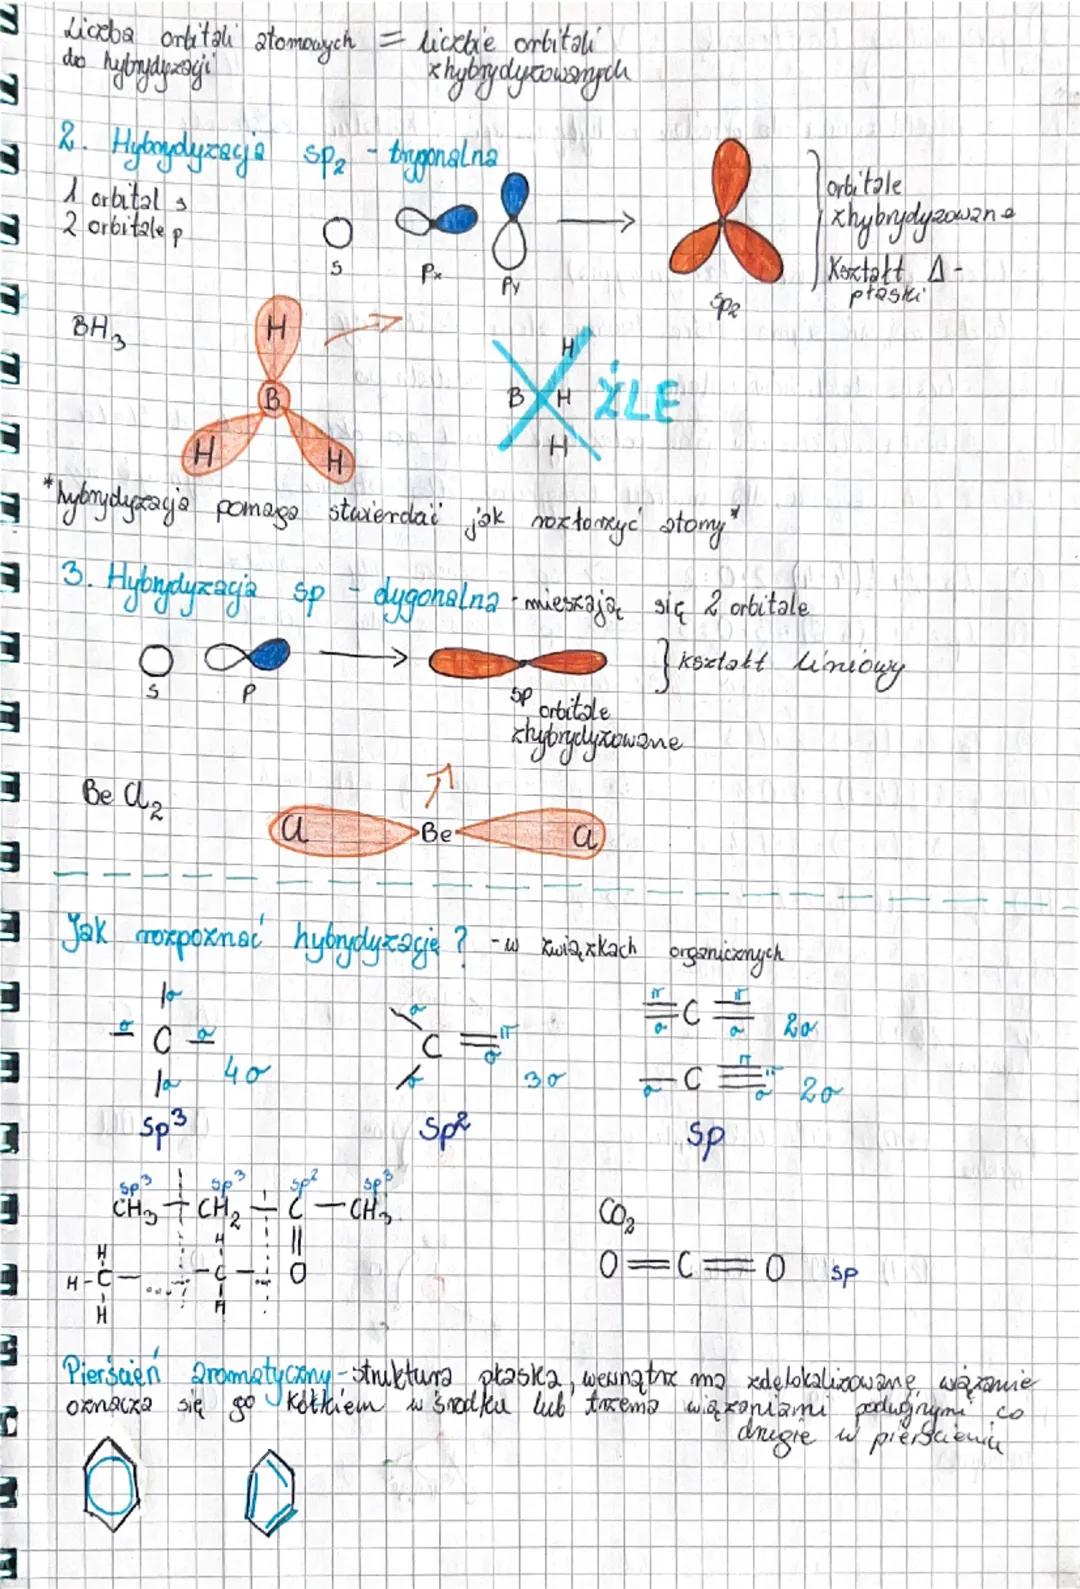 Liczba orbitali atomowych = liczbie orbitali
do hybrydyzacji zhybrydyzowanych
2. Hybrydyzacja sp₂ - trygonalna
1 orbital s
2 orbitale p
s px py sp₂
orbitale
zhybrydyzowane
Kształt Δ -
płaski
BH₃
H
B
H H
H
B H ŹLE
H
*hybrydyzacja pomaga stwierdać jak rozłożyć atomy*
3. Hybrydyzacja sp - dygonalna - mieszają się 2 orbitale
s p
sp orbitale
zhybrydyzowane
kształt liniowy
Be Cl₂
Cl Be Cl
Jak rozpoznać hybrydyzację? - w związkach organicznych
σ
σ C σ
σ 4σ
sp³
σ C π σ
σ 3σ
sp²
π π
= C = 2σ
σ σ
π
- C ≡ π 2σ
σ σ
sp
sp³ sp³ sp² sp³
CH₃ - CH₂ - C - CH₃
H H || 
H-C- -C- O
H H
CO₂
O=C=O sp
Pierścień aromatyczny - struktura płaska, wewnątrz ma zdelokalizowane wiązanie
oznacza się go kółkiem w środku lub trzema wiązaniami podwójnymi co
drugie w pierścieniu